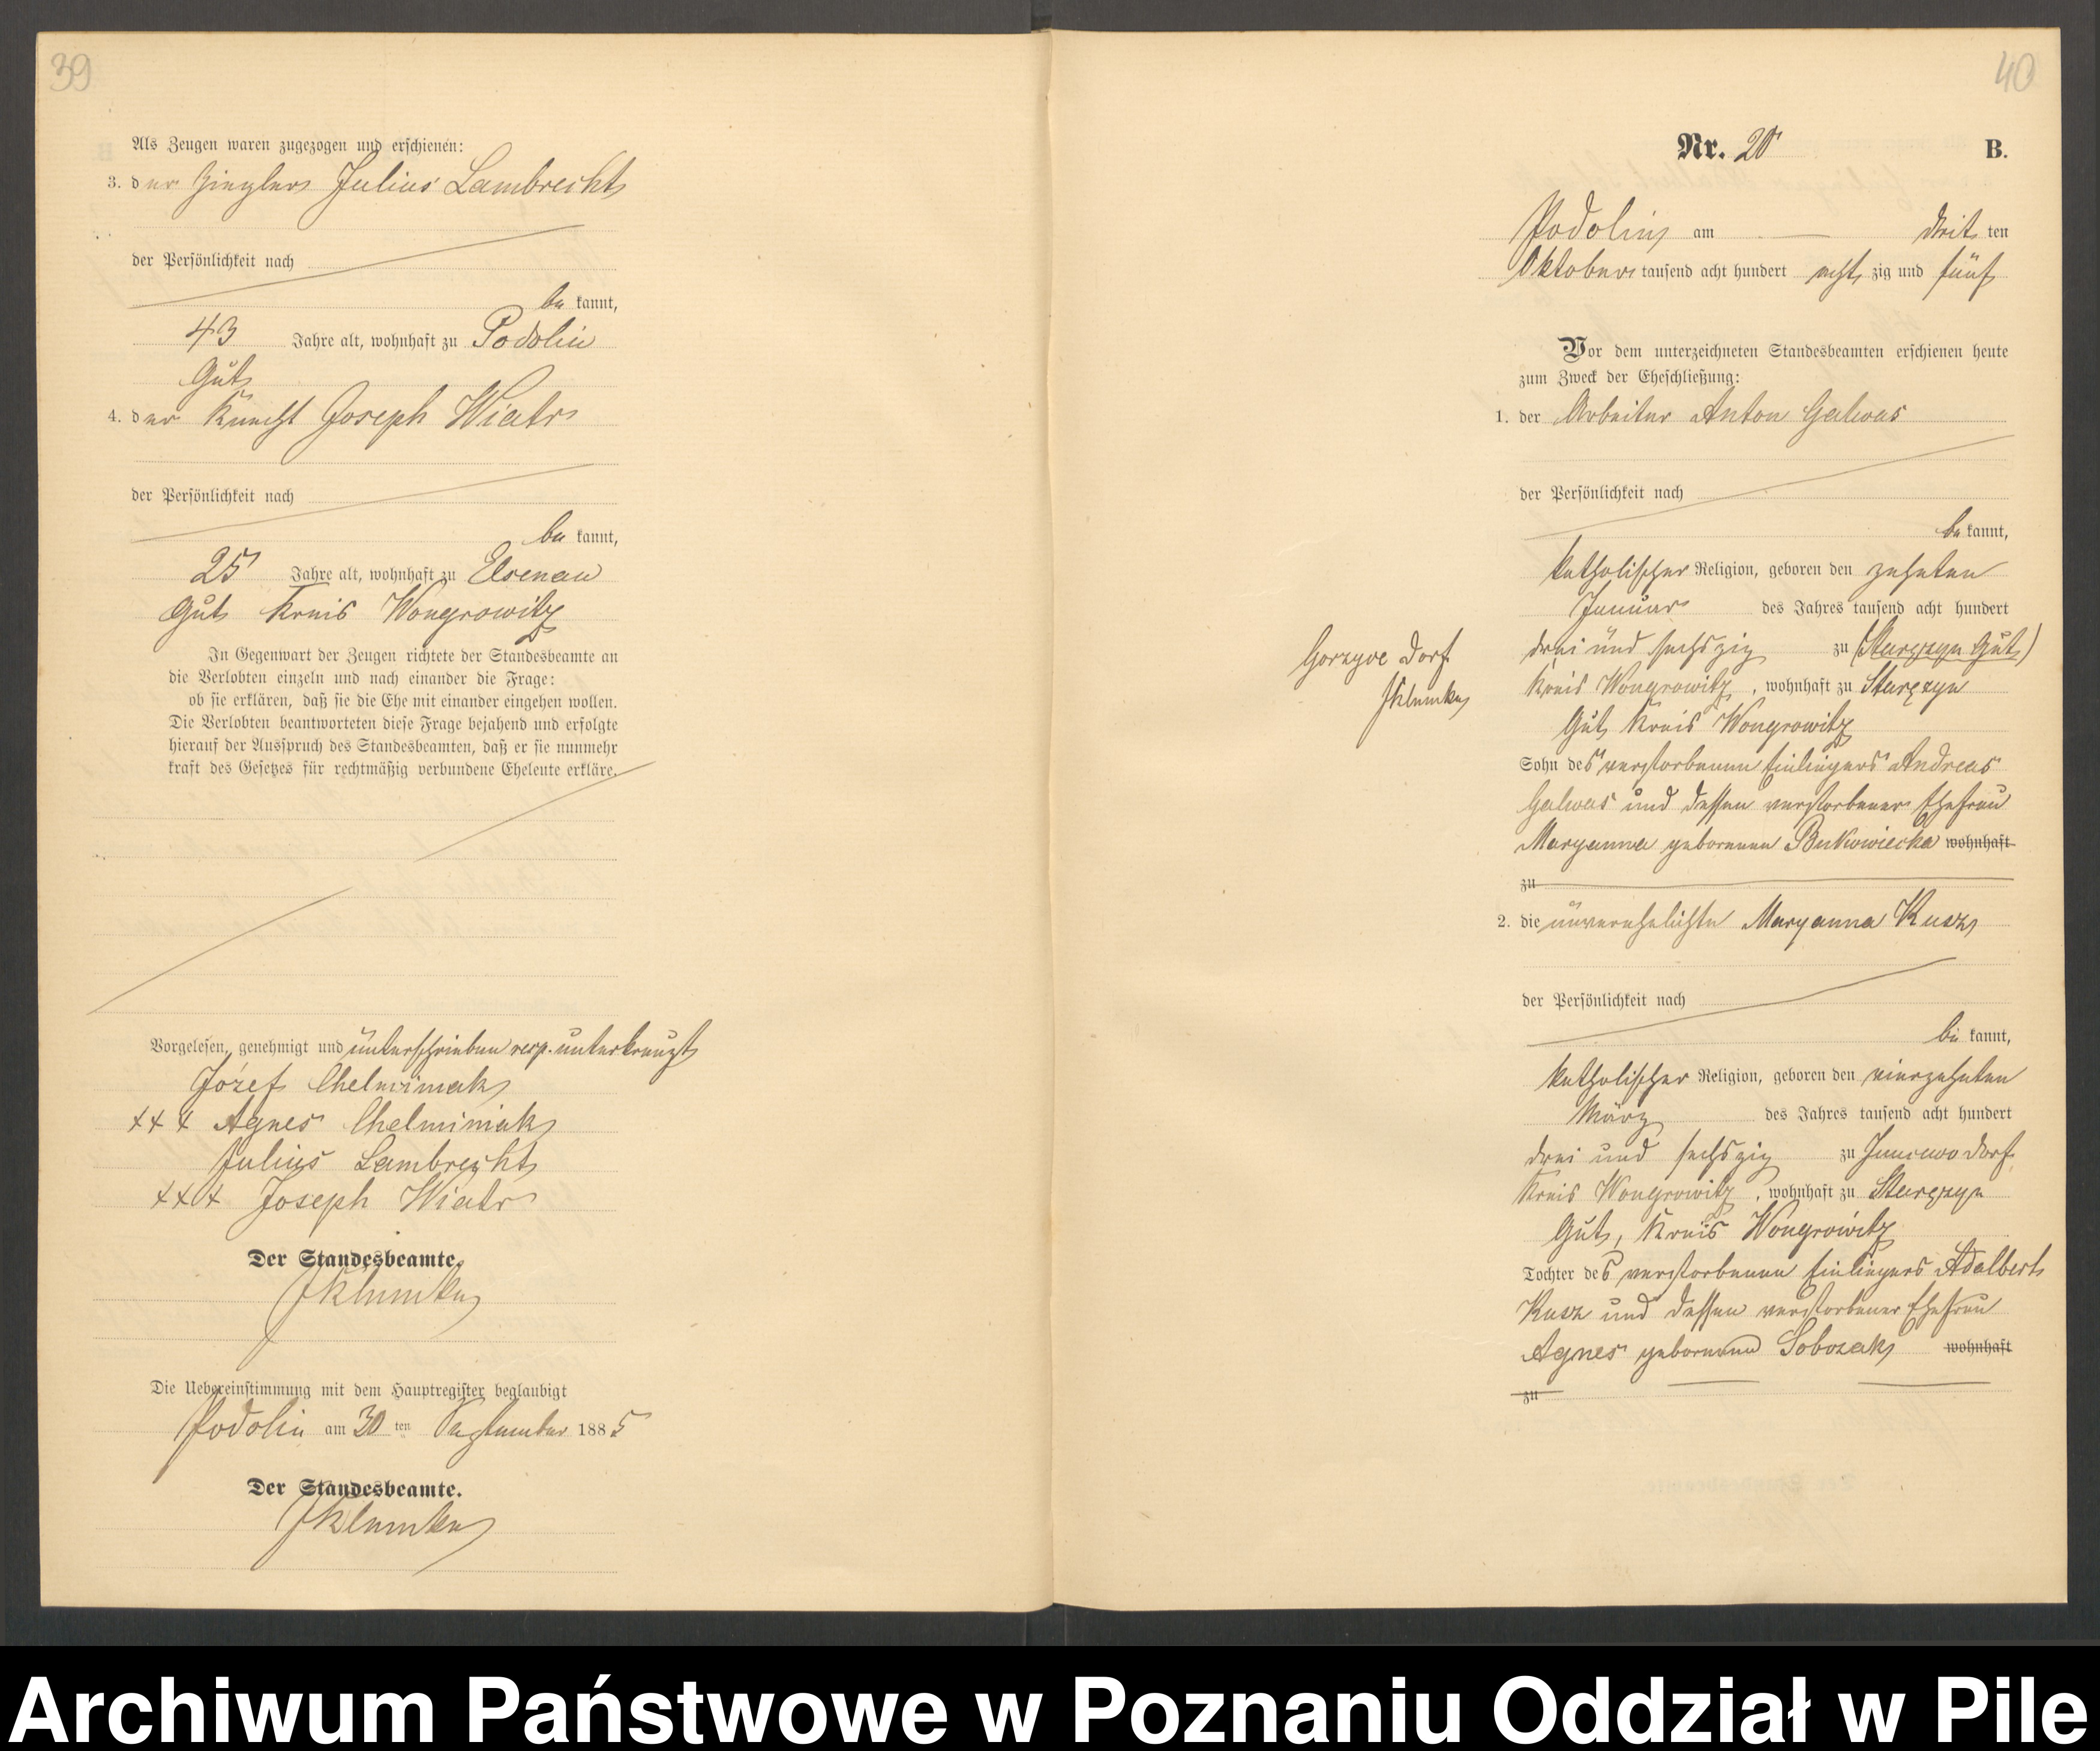 39
Als Zeugen waren zugezogen und erschienen:
3. der Ziegler Julius Lambrecht
der Persönlichkeit nach
be kannt,
43 Jahre alt, wohnhaft zu Podolin
Gut
4. der Knecht Joseph Wiatr
der Persönlichkeit nach
be kannt,
25 Jahre alt, wohnhaft zu Elsenau
Gut Kreis Wongrowitz
In Gegenwart der Zeugen richtete der Standesbeamte an
die Verlobten einzeln und nach einander die Frage:
ob sie erklären, daß sie die Ehe mit einander eingehen wollen.
Die Verlobten beantworteten diese Frage bejahend und erfolgte
hierauf der Ausspruch des Standesbeamten, daß er sie nunmehr
kraft des Gesetzes für rechtmäßig verbundene Eheleute erkläre.
Vorgelesen, genehmigt und unterschrieben resp. unterkreuzt
Józef Chelminiak
+++ Agnes Chelminiak
Julius Lambrecht
+++ Joseph Wiatr
Der Standesbeamte.
Klumka
Die Uebereinstimmung mit dem Hauptregister beglaubigt
Podolin am 30 ten September 1885
Der Standesbeamte.
Klumka
40
Nr. 20 B.
Podolin am dritten
Oktober tausend acht hundert acht zig und fünf
Vor dem unterzeichneten Standesbeamten erschienen heute
zum Zweck der Eheschließung:
1. der Arbeiter Anton Galwas
der Persönlichkeit nach
be kannt,
katholischer Religion, geboren den zehnten
Januar des Jahres tausend acht hundert
drei und sechszig zu (Starczyn Gut)
Gorzyce Dorf
Klumka
Kreis Wongrowitz, wohnhaft zu Starczyn
Gut Kreis Wongrowitz
Sohn des verstorbenen Einliegers Andreas
Galwas und dessen verstorbener Ehefrau
Maryanna geborenen Bukowiecka wohnhaft
zu
2. die unverehelichte Maryanna Kusz
der Persönlichkeit nach
be kannt,
katholischer Religion, geboren den vierzehnten
März des Jahres tausend acht hundert
drei und sechszig zu Juncewo Dorf
Kreis Wongrowitz, wohnhaft zu Starczyn
Gut, Kreis Wongrowitz
Tochter des verstorbenen Einliegers Adalbert
Kusz und dessen verstorbener Ehefrau
Agnes geborenen Sobczak wohnhaft
zu
Archiwum Państwowe w Poznaniu Oddział w Pile